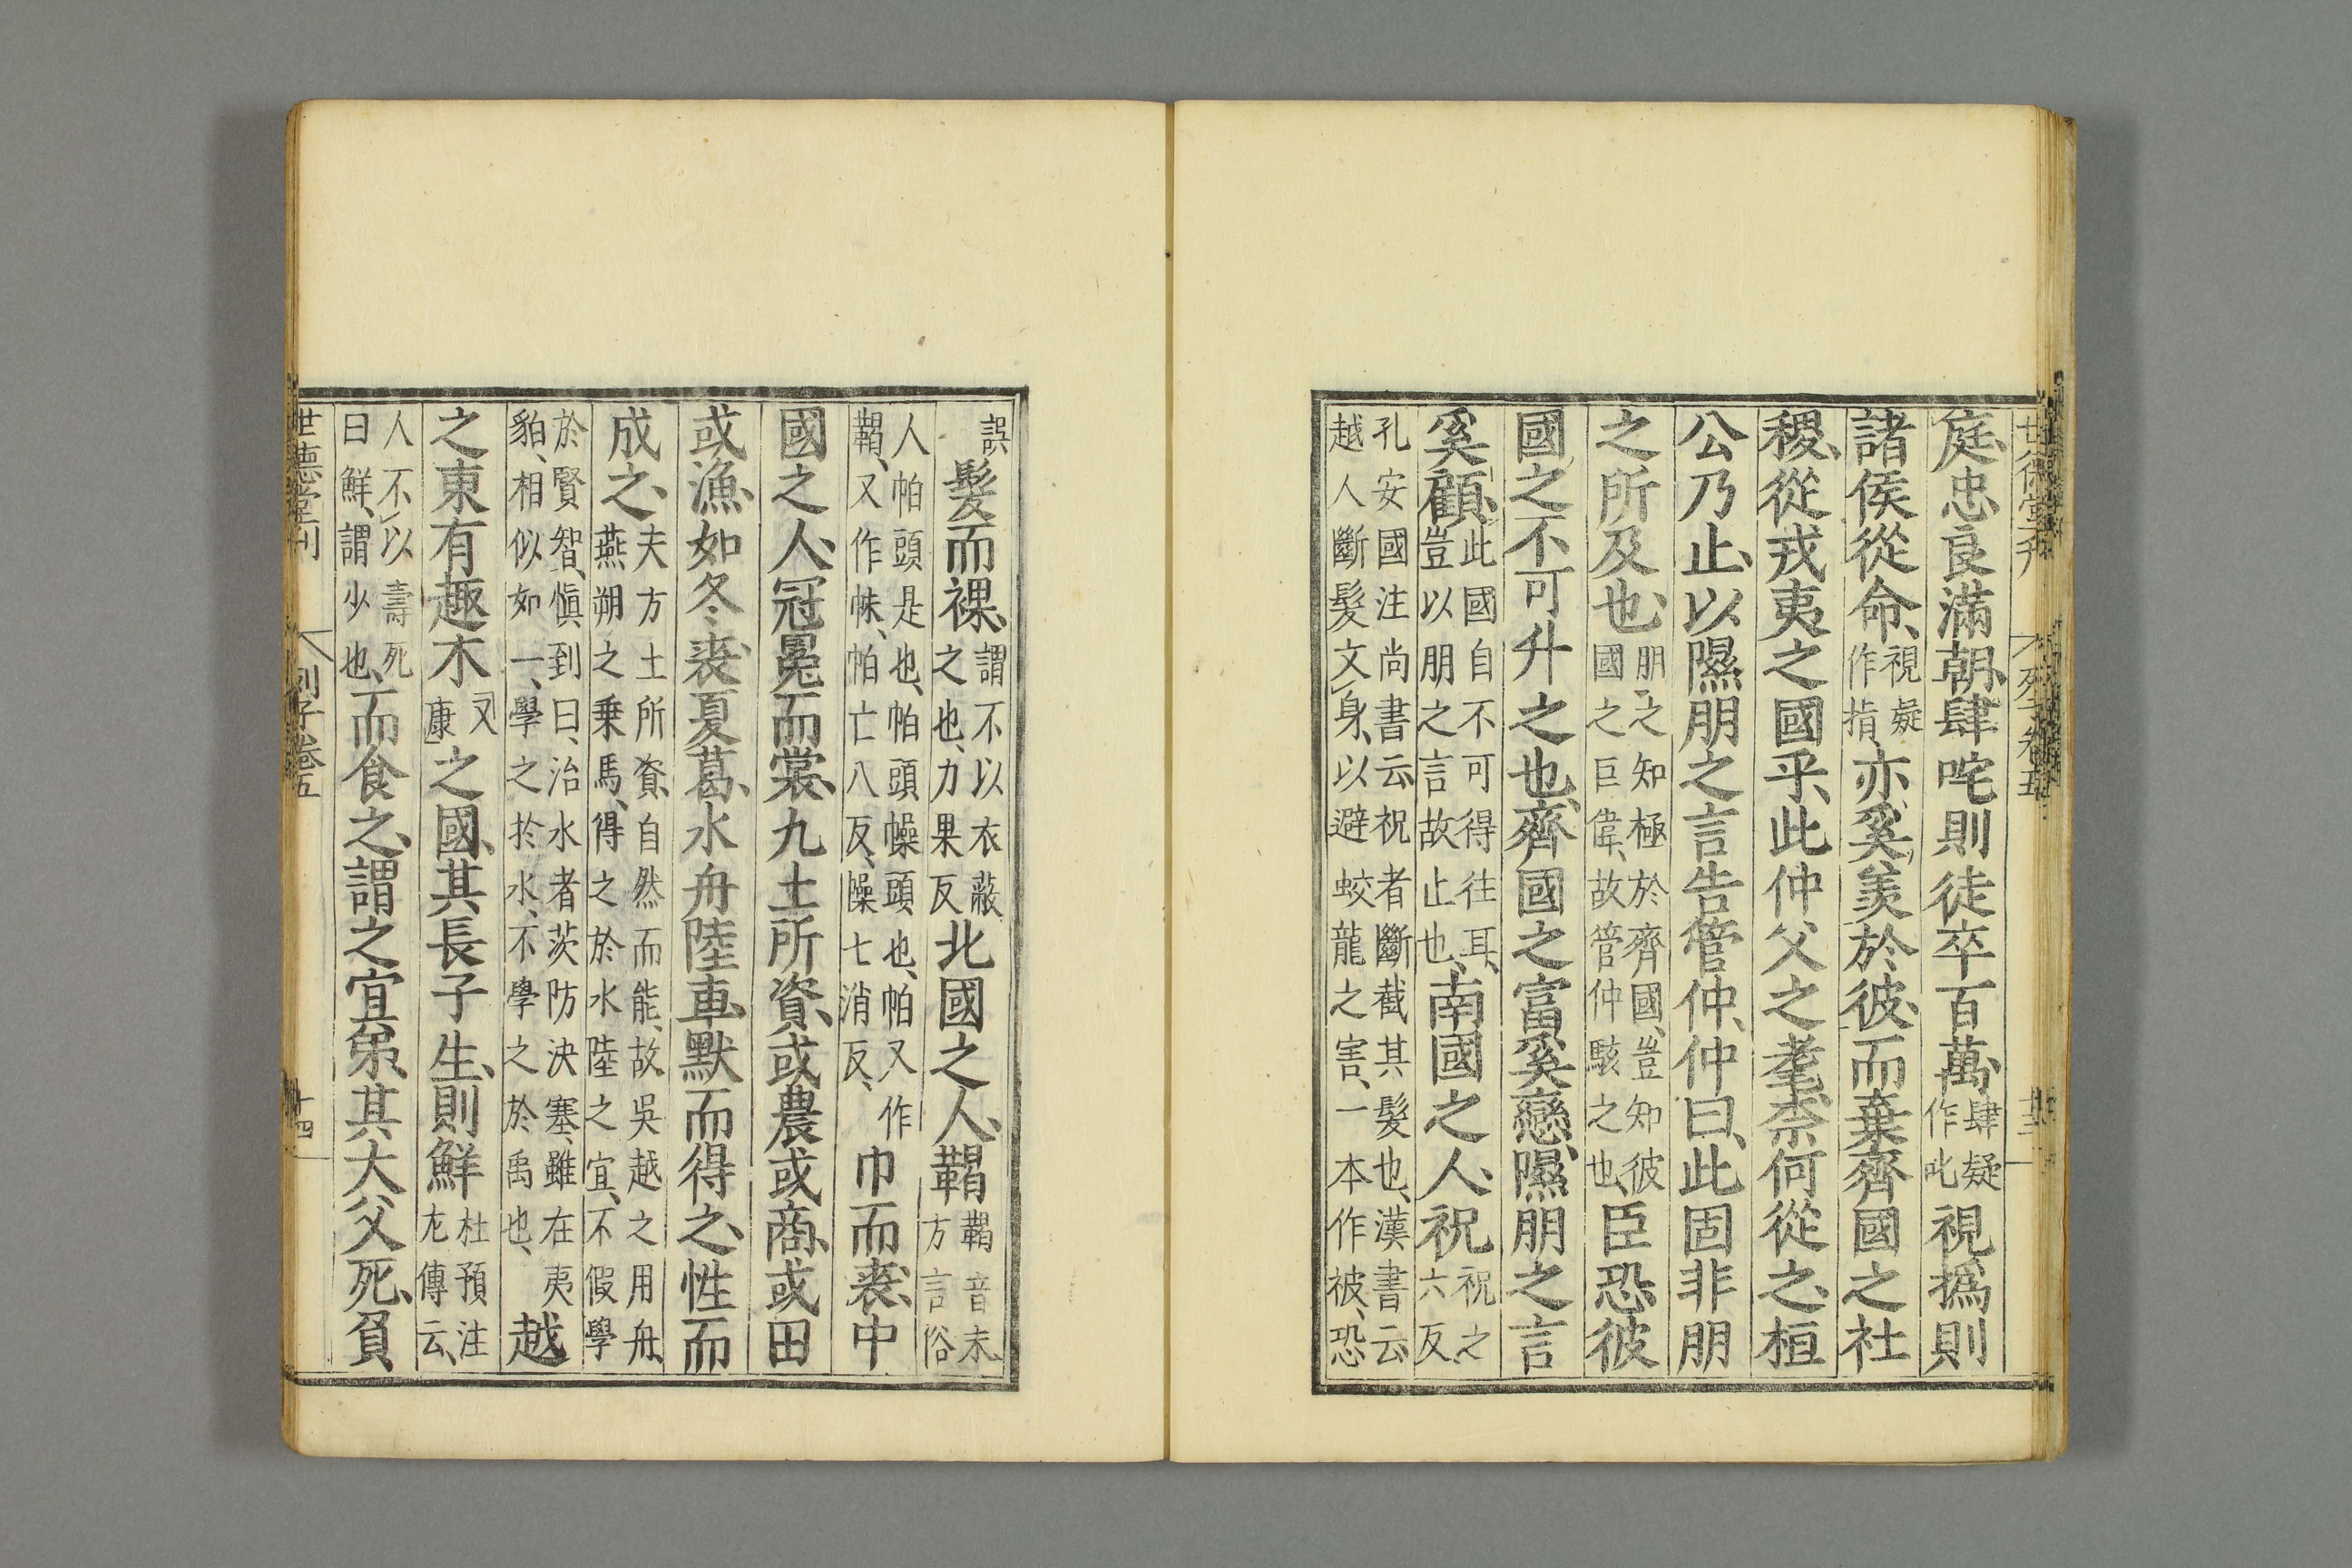 世德堂刊 列子卷五 十三
庭、忠良滿朝、肆咤則徒卒百萬、肆疑作叱視撝則
諸侯從命、視疑作指、亦奚羨於彼、而棄齊國之社
稷、從戎夷之國乎、此仲父之耄、柰何從之、桓
公乃止、以隰朋之言告管仲、仲曰、此固非朋
之所及也、朋之知極於齊國、豈知彼國之巨偉、故管仲駭之也、臣恐彼
國之不可升之也、齊國之富奚戀、隰朋之言
奚顧、此國自不可得往耳、豈以朋之言故止也、南國之人、祝祝之六反、
孔安國注尚書云祝者斷截其髮也、漢書云越人斷髮文身、以避蛟龍之害、一本作被、恐
誤髮而裸、謂不以衣蔽之也、力果反北國之人、鞨鞨音末、方言俗
人帕頭是也、帕頭幧頭也、帕又作鞨、又作帓、帕亡八反、幧七消反、巾而裘、中
國之人、冠冕而裳、九土所資、或農或商、或田
或漁、如冬裘、夏葛、水舟陸車、默而得之、性而
成之、夫方土所資、自然而能、故吳越之用舟、燕朔之乗馬、得之於水陸之宜、不假學
於賢智、愼到曰、治水者茨防決塞、雖在夷貃、相似如一、學之於水、不學之於禹也、越
之東有趣木又康之國、其長子生、則鮮杜預注左傳云、
人不以壽死曰鮮、謂少也、而食之、謂之宜弟、其大父死、負
世德堂刊 列子卷五 十四